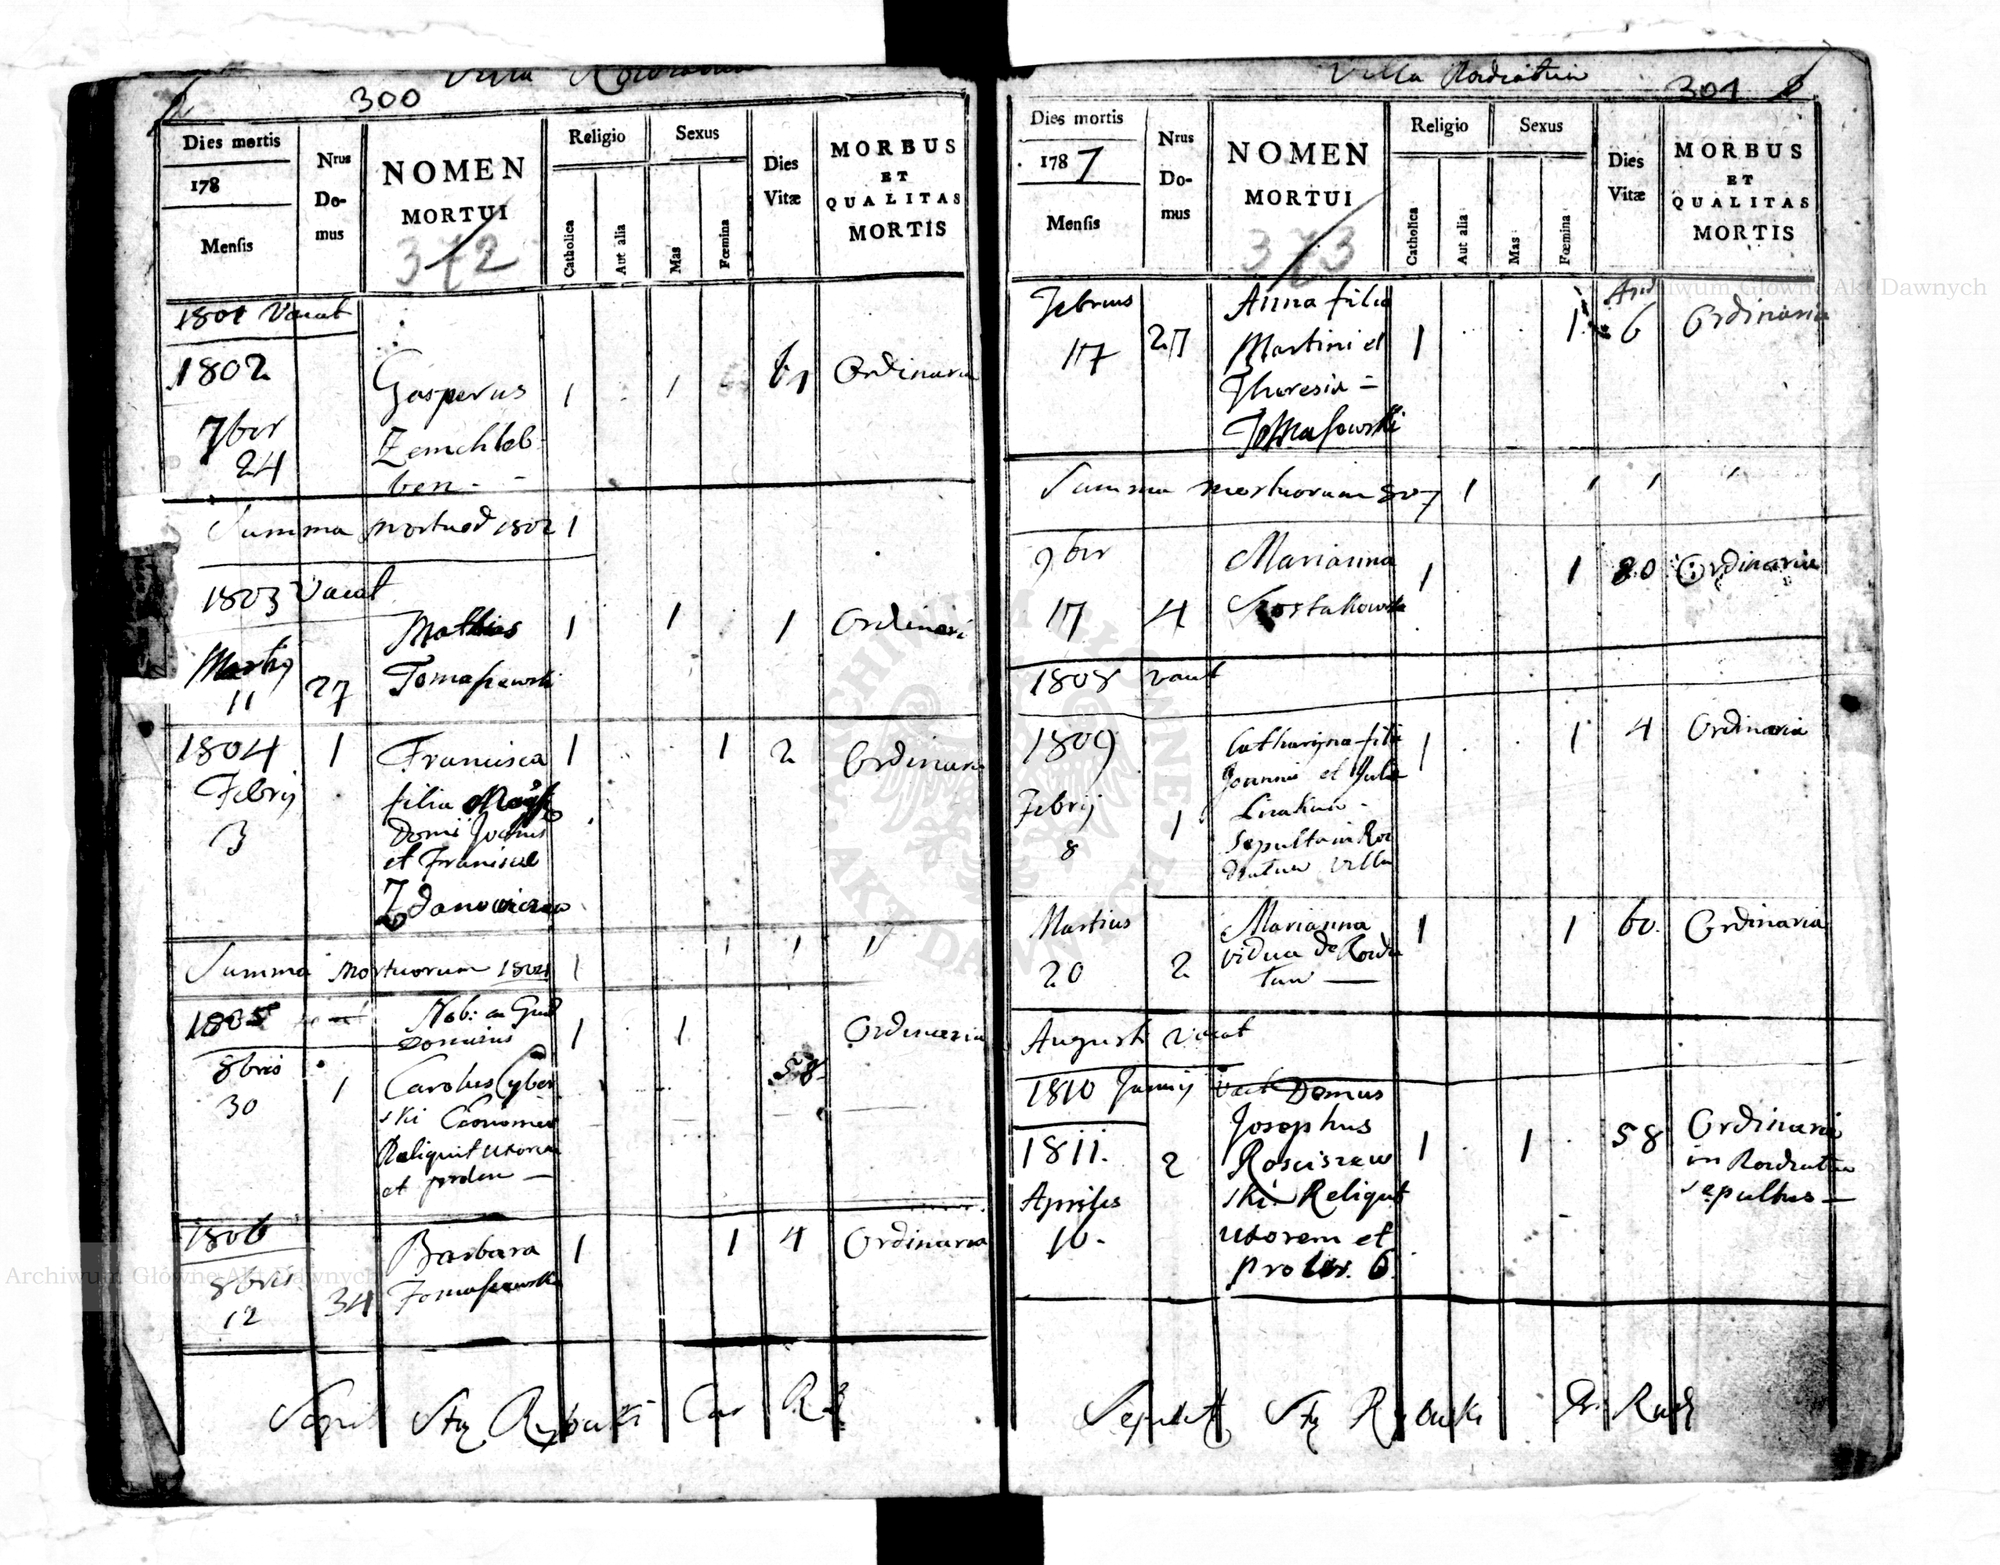 300
Villa
Dies mortis
178
Mensis
Nrus Do-mus
NOMEN
MORTUI
372
Religio
Catholica
Aut alia
Sexus
Mas
Fœmina
Dies Vitæ
MORBUS
ET
QUALITAS
MORTIS
1801 Vacat
1802
7br
24
Gasperus
Zemchleb-
ben - -
1 1 61 Ordinaria
Summa mortuor 1802 1
1803 Vacat
Martij
11
27
Mathias
Tomaszewski
1 1 1 Ordinari
1804
Febrij
3
1
Francisca
filia
Domi Joannis
et Francisce
Zdanowicz
1 1 2 Ordinari
Summa Mortuorum 1804 1 1 1 1
1805
8bris
30
1
Nob:
Dominus
Carolus Cyber
ski Economus
Reliquit Uxorem
et prolem —
1 1 58 Ordinaria
1806
8bris
12
34
Barbara
Tomaszewska
1 1 4 Ordinaria
Rybuski
Villa Rordratuw
301
Dies mortis
1787
Mensis
Nrus Do-mus
NOMEN
MORTUI
373
Religio
Catholica
Aut alia
Sexus
Mas
Fœmina
Dies Vitæ
MORBUS
ET
QUALITAS
MORTIS
Febrius
17
27
Anna filia
Martini et
Theresia =
Tomaszowski
1 1 6 Ordinaria
Summa mortuorum 807 1 1 1 1
9br
17
4
Marianna
1 1 80 Ordinaria
1808 vacat
1809
Febrij
8
1
Catharyna filia
Joannis et Julia
Sepulta in Ror
dratuw Villa
1 1 4 Ordinaria
Martius
20
2
Marianna
vidua de Rordra
tuw —
1 1 60. Ordinaria
Augusti Vacat
1810 Junij Vacat Domus
1811.
Aprilis
10.
2
Josephus
Rosciszew
ski. Reliquit
uxorem et
proles. 6.
1 1 58 Ordinaria
in Rordratuw
sepultus —
Rybuski
Archiwum Główne Akt Dawnych
ARCHIWUM GŁÓWNE AKT DAWNYCH
Archiwum Główne Akt Dawnych